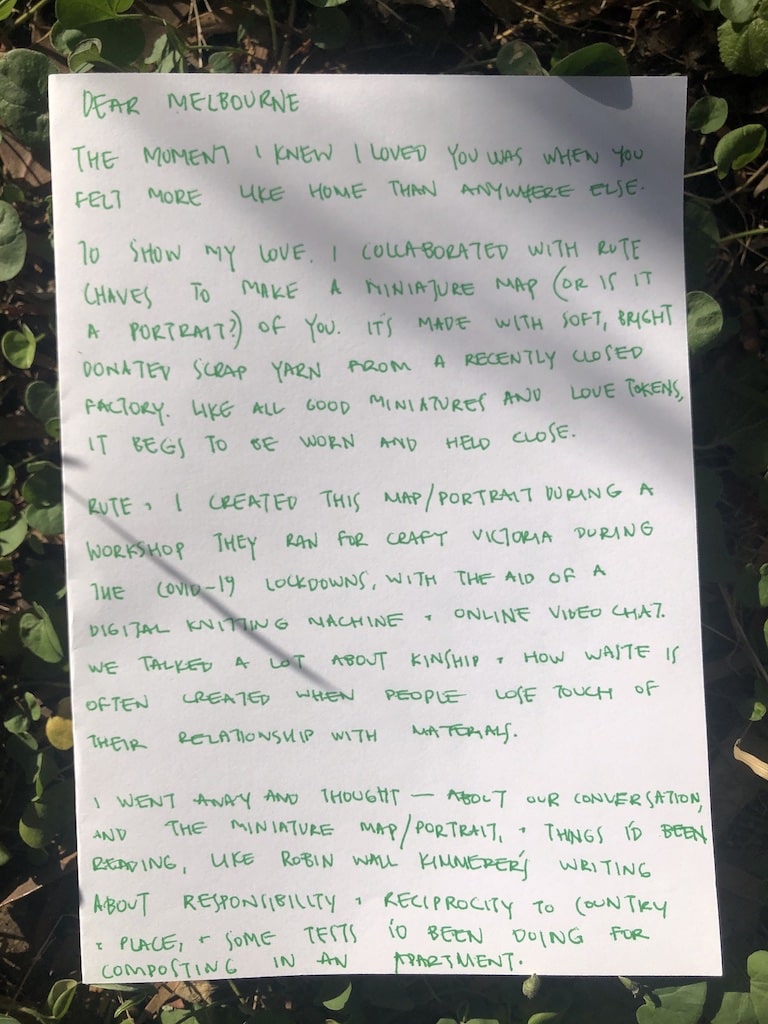 DEAR MELBOURNE
THE MOMENT I KNEW I LOVED YOU WAS WHEN YOU
FELT MORE LIKE HOME THAN ANYWHERE ELSE.
TO SHOW MY LOVE, I COLLABORATED WITH RUTE
CHAVES TO MAKE A MINIATURE MAP (OR IS IT
A PORTRAIT?) OF YOU. IT'S MADE WITH SOFT, BRIGHT
DONATED SCRAP YARN FROM A RECENTLY CLOSED
FACTORY. LIKE ALL GOOD MINIATURES AND LOVE TOKENS,
IT BEGS TO BE WORN AND HELD CLOSE.
RUTE + I CREATED THIS MAP/PORTRAIT DURING A
WORKSHOP THEY RAN FOR CRAFT VICTORIA DURING
THE COVID-19 LOCKDOWNS, WITH THE AID OF A
DIGITAL KNITTING MACHINE + ONLINE VIDEO CHAT.
WE TALKED A LOT ABOUT KINSHIP + HOW WASTE IS
OFTEN CREATED WHEN PEOPLE LOSE TOUCH OF
THEIR RELATIONSHIP WITH MATERIALS.
I WENT AWAY AND THOUGHT — ABOUT OUR CONVERSATION,
AND THE MINIATURE MAP/PORTRAIT, + THINGS I'D BEEN
READING, LIKE ROBIN WALL KIMMERER'S WRITING
ABOUT RESPONSIBILITY + RECIPROCITY TO COUNTRY
+ PLACE, + SOME TESTS I'D BEEN DOING FOR
COMPOSTING IN AN APARTMENT.